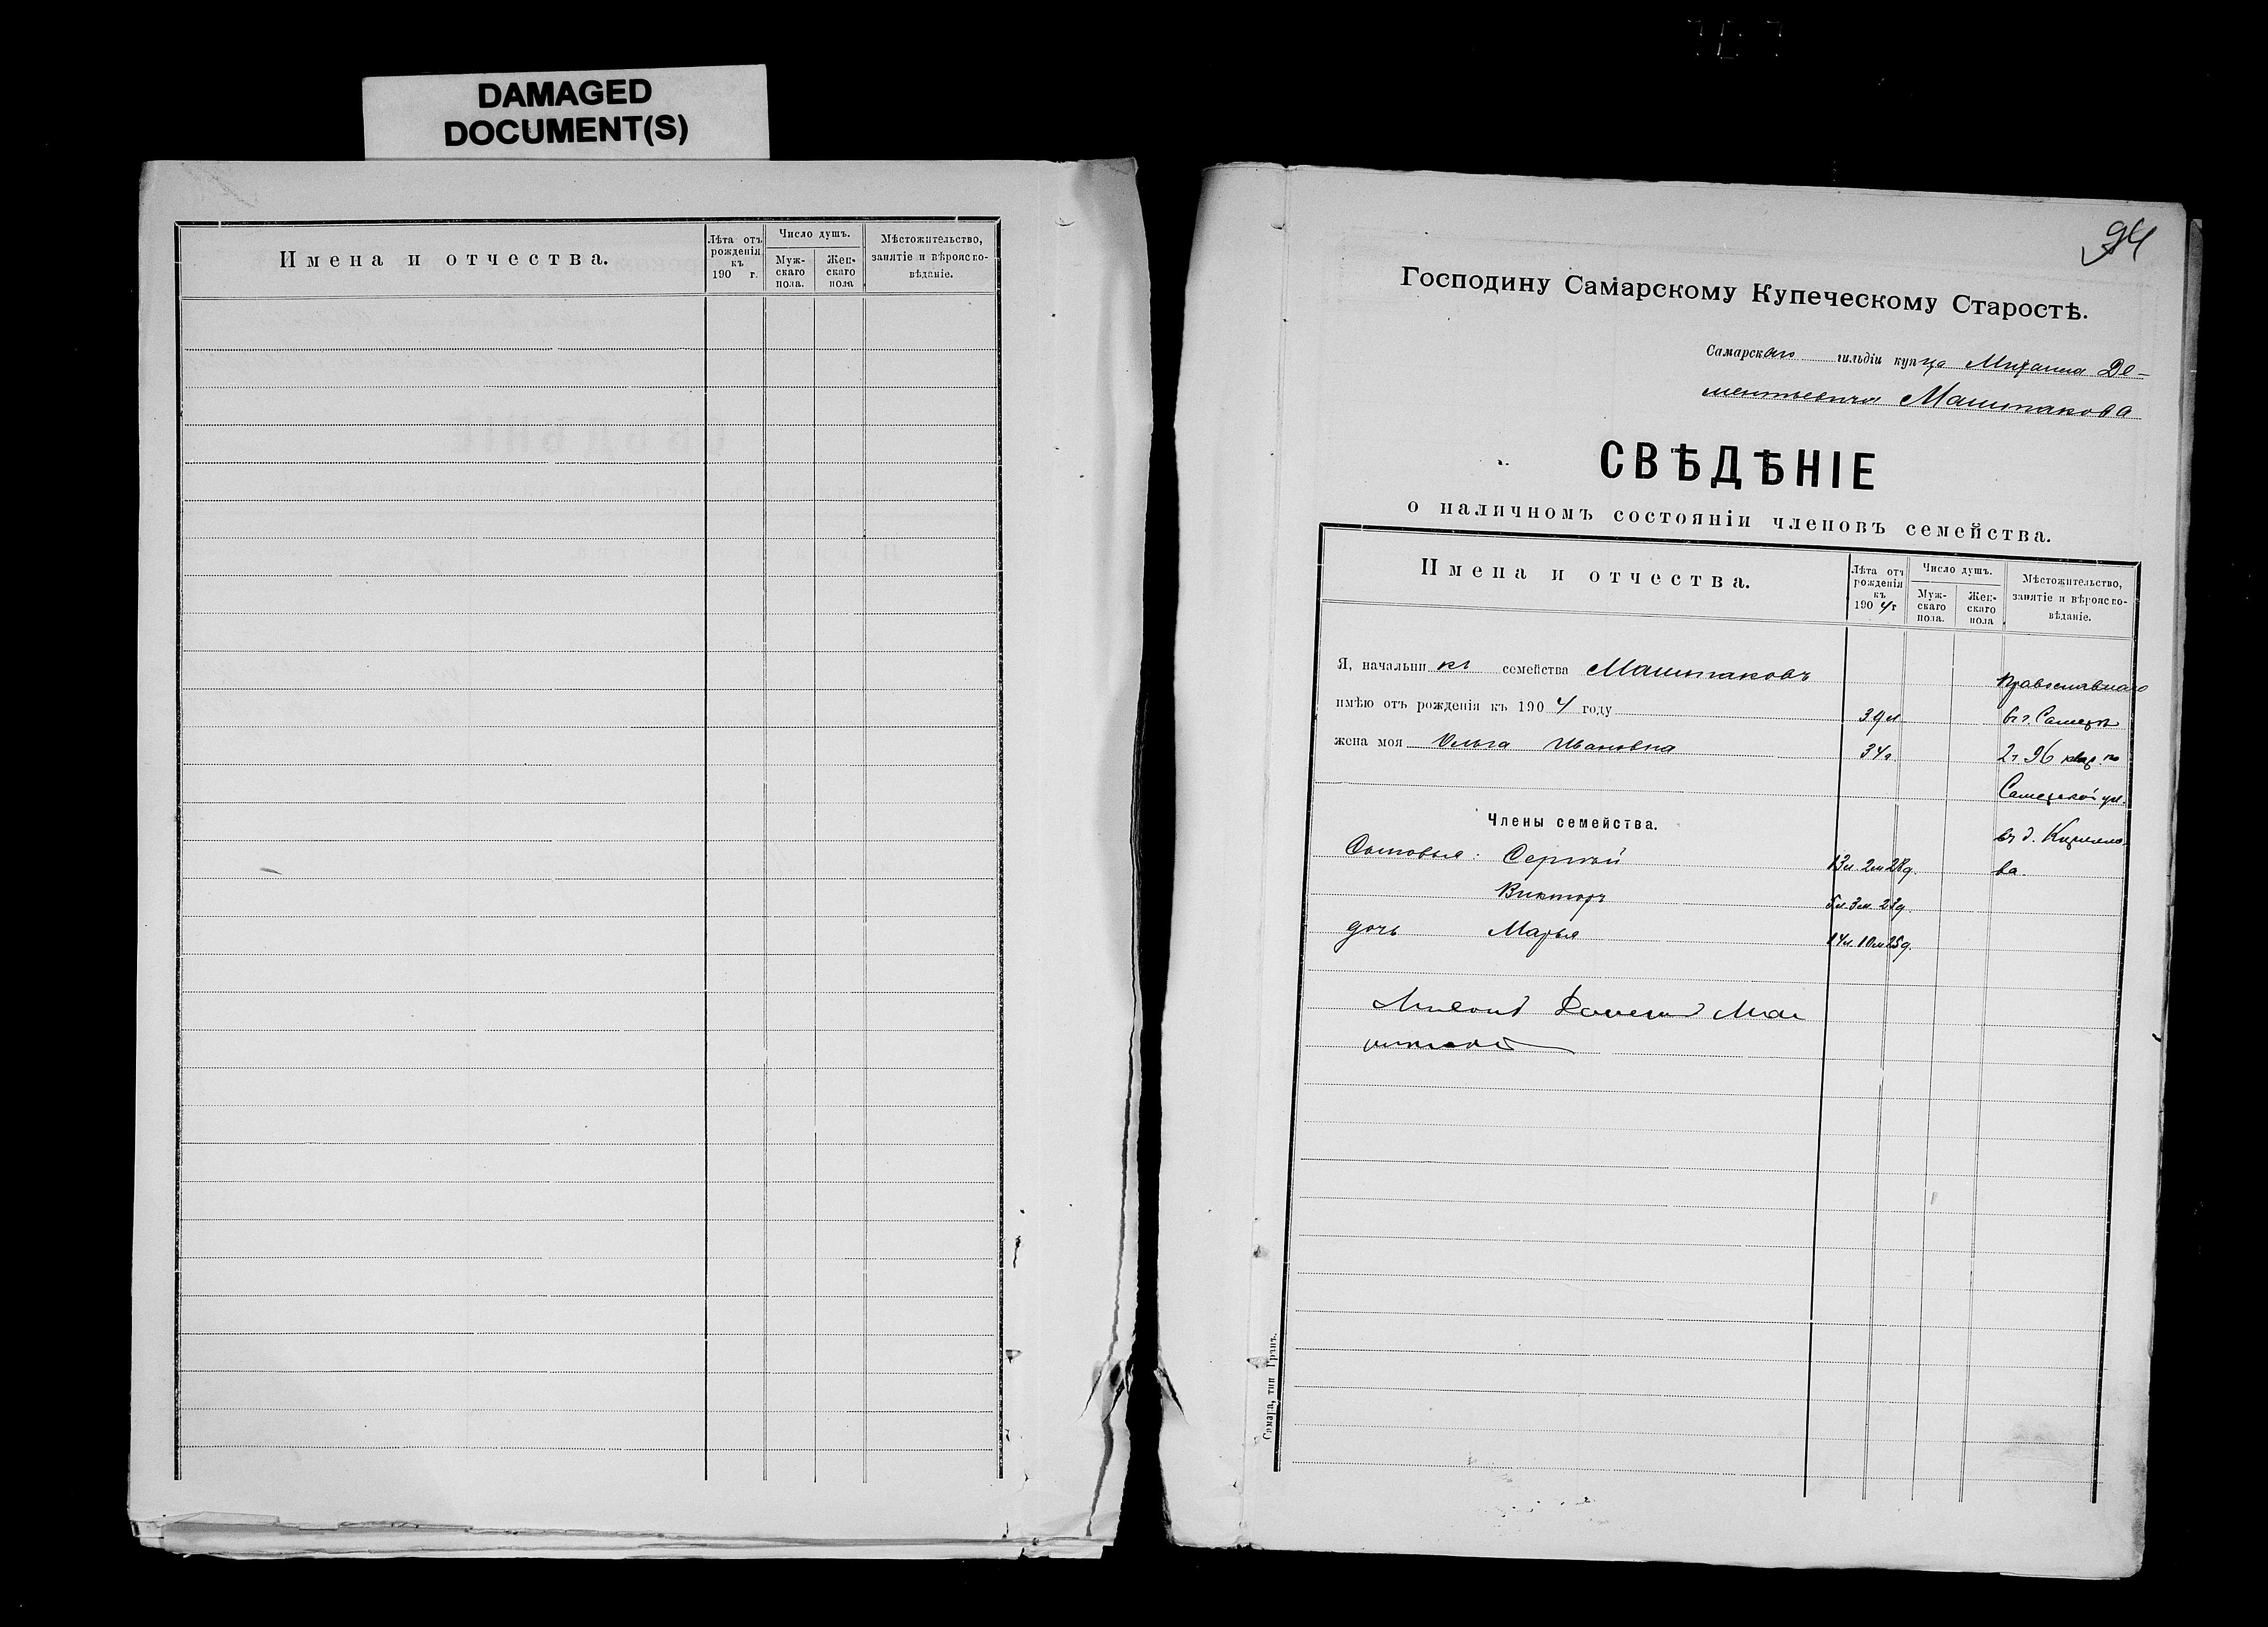 DAMAGED
DOCUMENT(S)
Имена и отчества.
Лѣта отъ рожденія къ 190 г.
Число душъ.
Мужскаго пола.
Женскаго пола
Мѣстожительство, занятіе и вѣроисповѣданіе.
94
Господину Самарскому Купеческому Старостѣ.
Самарскаго гильдіи купца Михаила Де-
ментьевича Маштакова
СВѢДѢНІЕ
о наличномъ состояніи членовъ семейства.
Имена и отчества.
Лѣта отъ рожденія къ 1904 г
Число душъ.
Мужскаго пола.
Женскаго пола
Мѣстожительство, занятіе и вѣроисповѣданіе.
Я, начальникъ семейства Маштаковъ
Православнаго
имѣю отъ рожденія къ 1904 году 39 л въ г. Самарѣ
жена моя Ольга Ивановна 34 г. 2 ч 96 квар. по
Самарской ул.
Члены семейства.
въ д.
Сыновья: Сергѣй 13 л. 2 м 28 д. ва.
Викторъ 5 л. 3 м. 28 д.
дочь Марья 14 л. 10 м 25 д.
Самара, тип Гранъ.